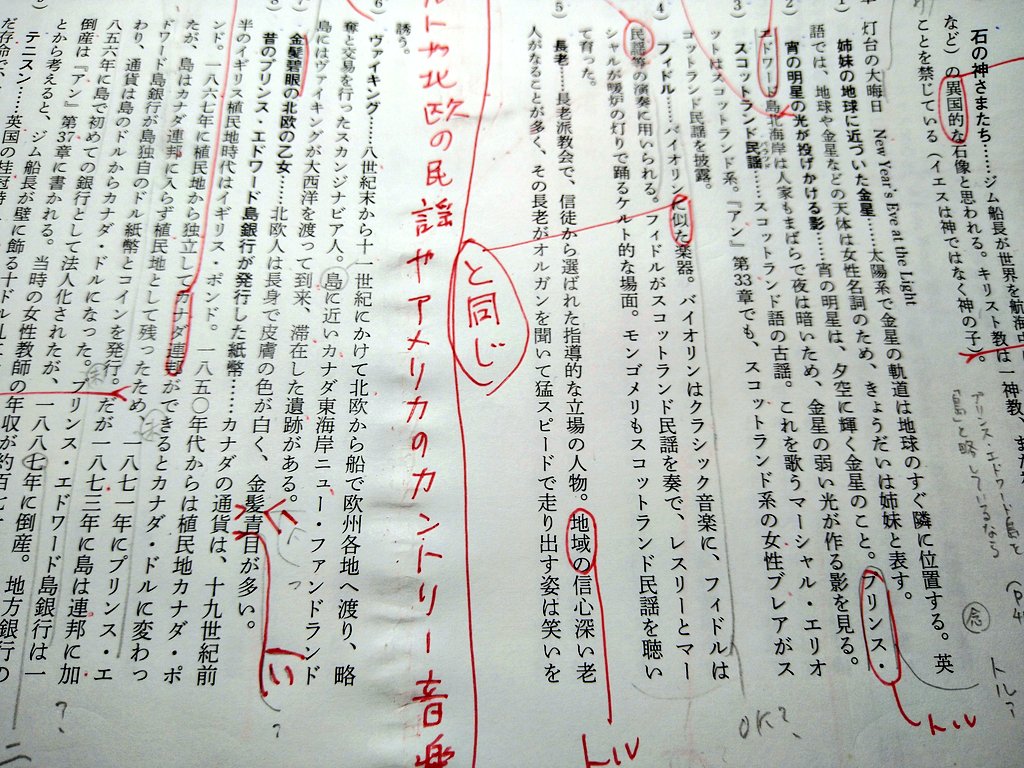 石の神さまたち……ジム船長が世界を航海
など）の異国的な石像と思われる。キリスト教は一神教、
ことを禁じている（イエスは神ではなく神の子）。
灯台の大晦日 New Year's Eve at the Light
姉妹の地球に近づいた金星……太陽系で金星の軌道は地球のすぐ隣に位置する。英
語では、地球や金星などの天体は女性名詞のため、きょうだいは姉妹と表す。
2 宵の明星の光が投げかける影……宵の明星は、夕空に輝く金星のこと。プリンス・
エドワード島北海岸は人家もまばらで夜は暗いため、金星の弱い光が作る影を見る。
3 スコットランド民謡……スコットランド語の古謡。これを歌うマーシャル・エリオ
ットはスコットランド系。『アン』第33章でも、スコットランド系の女性ブレアがス
コットランド民謡を披露。
4） フィドル……バイオリンに似た楽器。バイオリンはクラシック音楽に、フィドルは
民謡等の演奏に用いられる。フィドルがスコットランド民謡を奏で、レスリーとマー
シャルが暖炉の灯りで踊るケルト的な場面。モンゴメリもスコットランド民謡を聴い
て育った。
5） 長老……長老派教会で、信徒から選ばれた指導的な立場の人物。地域の信心深い老
人がなることが多く、その長老がオルガンを聞いて猛スピードで走り出す姿は笑いを
誘う。
6 ヴァイキング……八世紀末から十一世紀にかけて北欧から船で欧州各地へ渡り、略
奪と交易を行ったスカンジナビア人。島に近いカナダ東海岸ニュー・ファンドランド
島にはヴァイキングが大西洋を渡って到来、滞在した遺跡がある。
金髪碧眼の北欧の乙女……北欧人は長身で皮膚の色が白く、金髪青目が多い。
昔のプリンス・エドワード島銀行が発行した紙幣……カナダの通貨は、十九世紀前
半のイギリス植民地時代はイギリス・ポンド。一八五〇年代からは植民地カナダ・ポ
ンド。一八六七年に植民地から独立してカナダ連邦ができるとカナダ・ドルに変わっ
たが、島はカナダ連邦に入らず植民地として残ったため、一八七一年にプリンス・エ
ドワード島銀行が島独自のドル紙幣とコインを発行。だが一八七三年に島は連邦に加
わり、通貨は島のドルからカナダ・ドルになった。プリンス・エドワード島銀行は一
八五六年に島で初めての銀行として法人化されたが、一八八七年に倒産。地方銀行の
倒産は『アン』第37章に書かれる。当時の女性教師の年収が約百七
とから考えると、ジム船長が壁に飾る十ドル札
テニスン……英国の桂冠詩
プリンス・エドワード島を
「島」と略しているなら
トル？
念
トル
OK?
トル
と同じ
ルトや北欧の民謡やアメリカのカントリー音楽
い
?
?